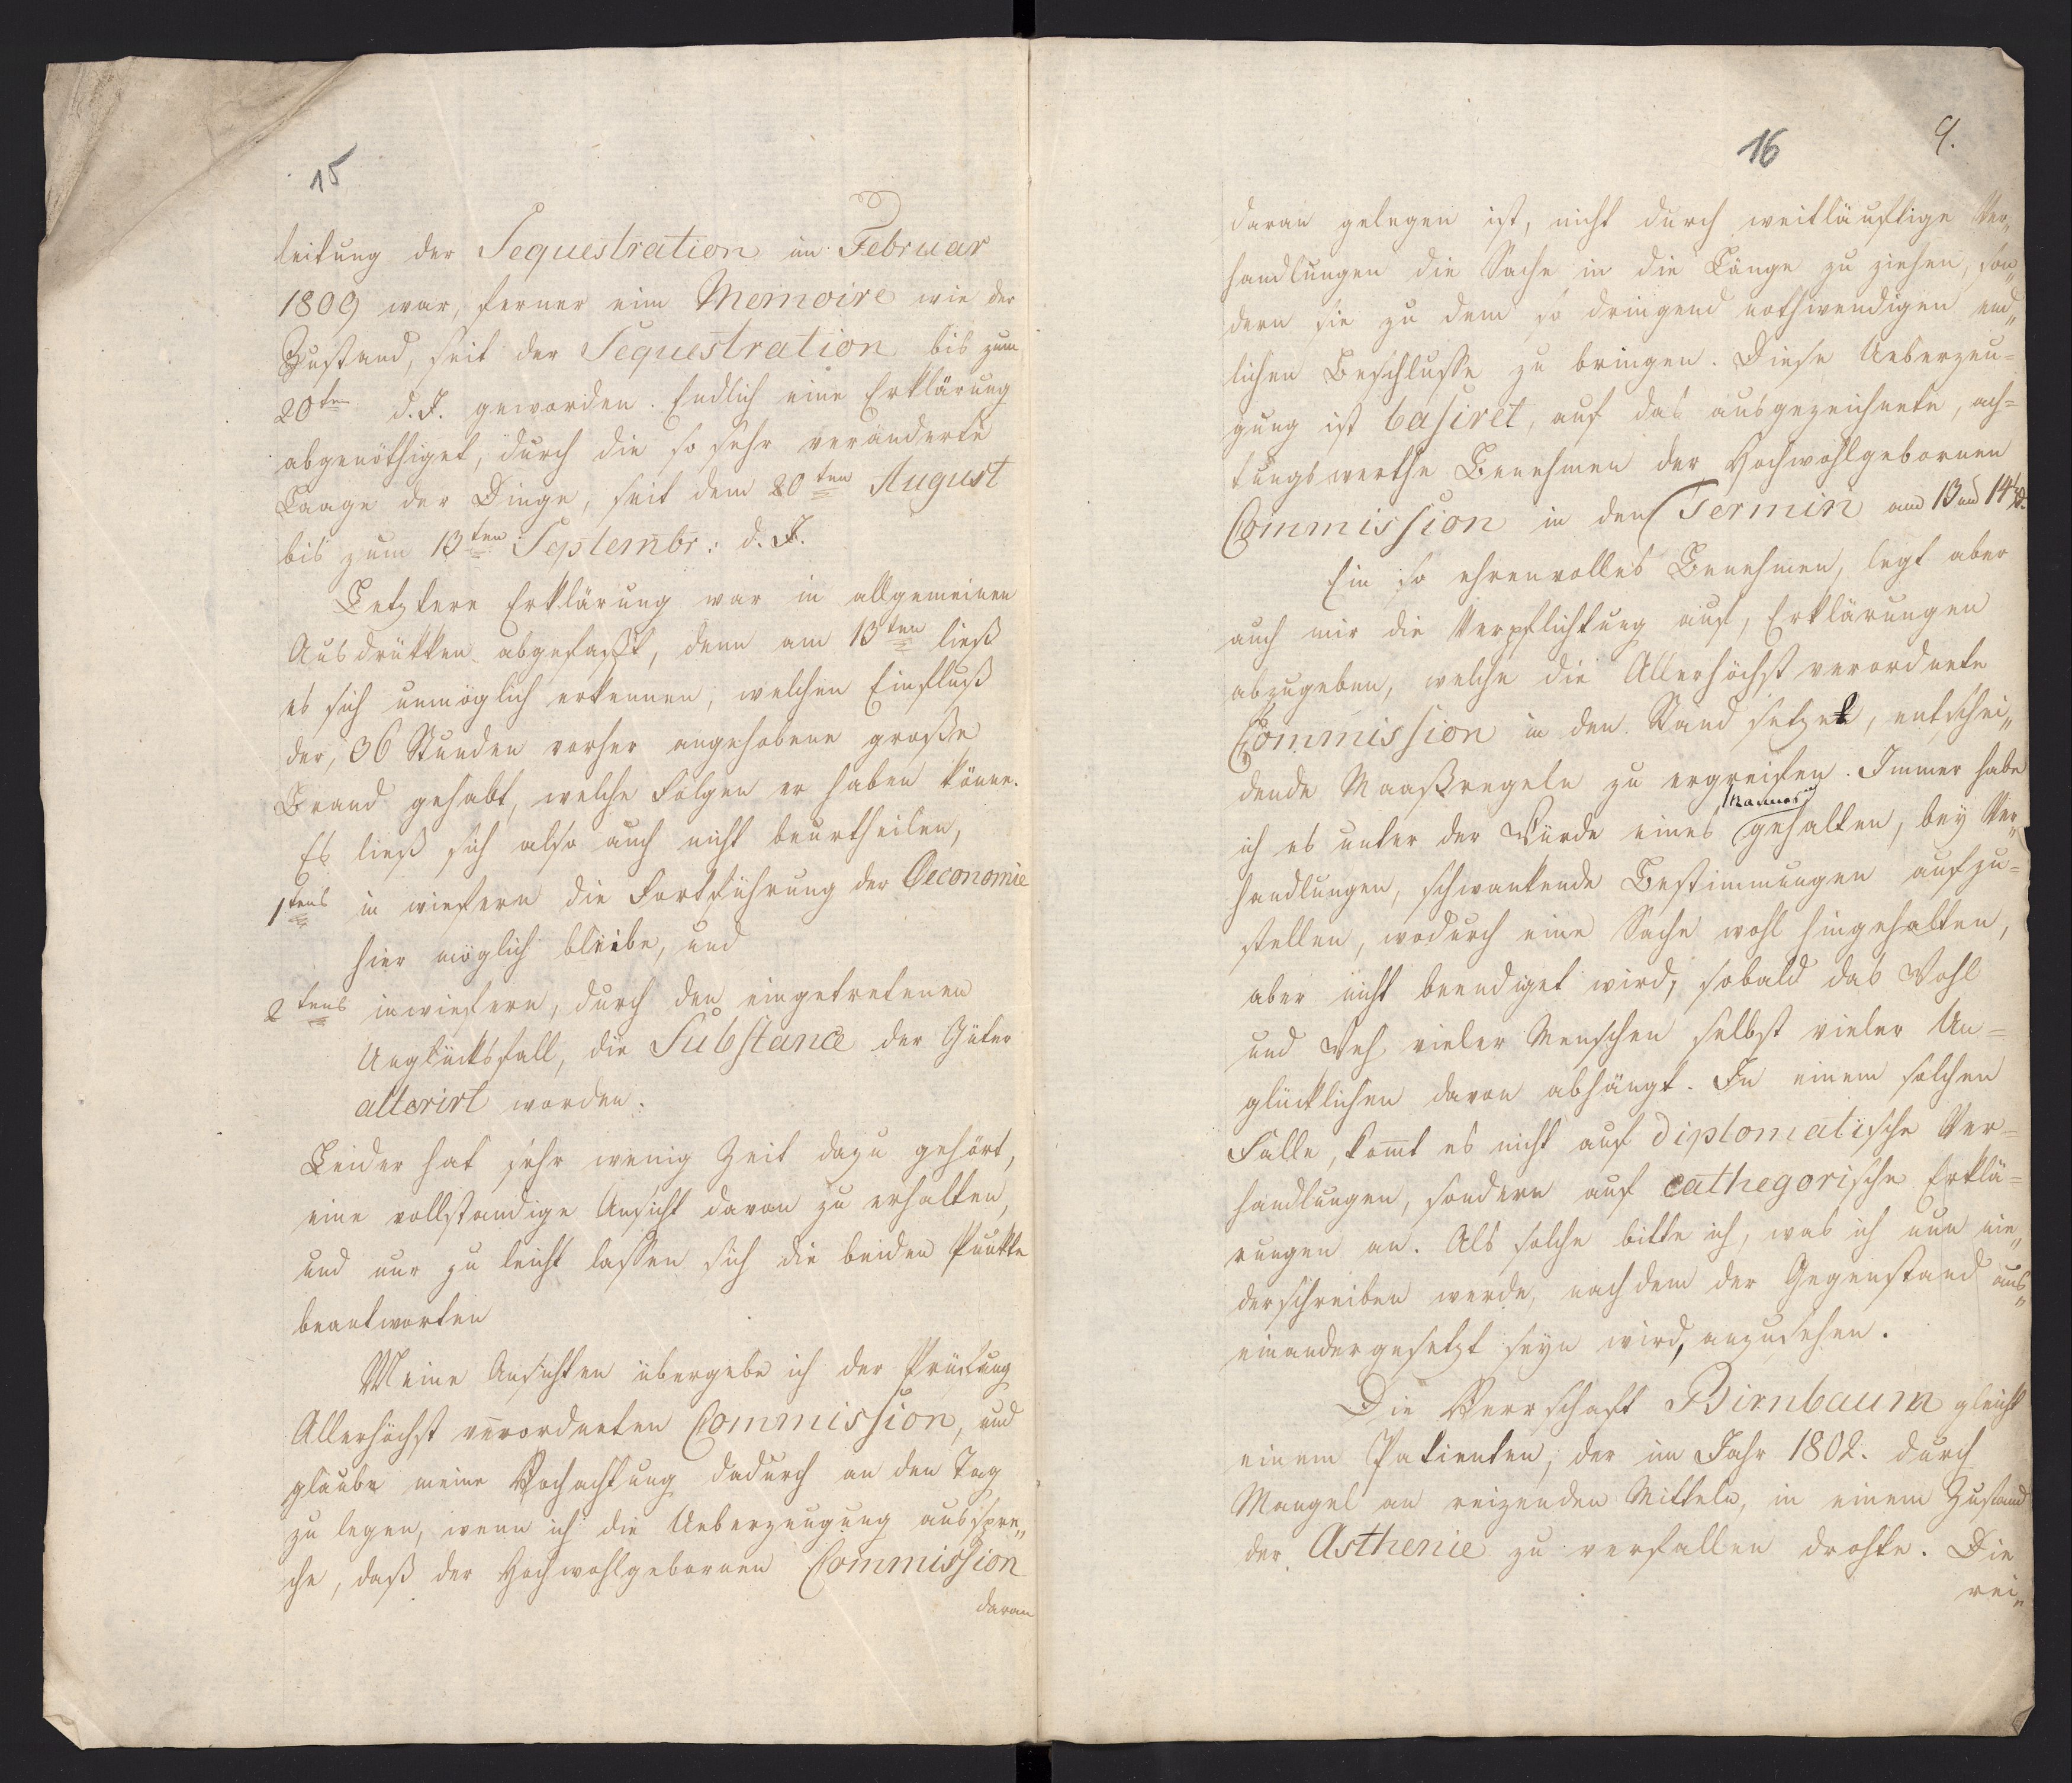 15
leitung der Sequestration im Februar
1809 war, ferner ein Memoire wie der
Zustand, seit der Sequestration bis zum
20ten d. J. geworden. Endlich eine Erklärung
abgenöthiget, durch die so sehr veränderte
Laage der Dinge, seit dem 20ten August
bis zum 13ten Septembr: d. J.
Letztere Erklärung war in allgemeinen
Ausdrükken abgefaßt, denn am 13ten ließ
es sich unmöglich erkennen, welchen Einfluß
der, 36 Stunden vorher angehobene große
Brand gehabt, welche Folgen er haben könne.
Es ließ sich also auch nicht beurtheilen,
1tens in wiefern die Fortführung der Oeconomie
hier möglich bliebe, und
2tens inwiefern, durch den eingetretenen
Unglücksfall, die Substance der Güter
alterirt worden.
Leider hat sehr wenig Zeit dazu gehört,
eine vollstandige Ansicht davon zu erhalten,
und nur zu leicht lassen sich die beiden Punkte
beantworten
Meine Ansichten übergebe ich der Prüfung
Allerhöchst verordneten Commission, und
glaube meine Hochachtung dadurch an den Tag
zu legen, wenn ich die Ueberzeugung ausspre„
che, daß der Hochwohlgebornen Commission
daran
16
9.
daran gelegen ist, nicht durch weitläuftige Ver„
handlungen die Sache in die Länge zu ziehen, son„
dern sie zu dem so dringend nothwendigen end„
lichen Beschlusse zu bringen. Diese Ueberzeu=
gung ist basiret, auf das ausgezeichnete, ach=
tungswerthe Benehmen der Hochwohlgebornen
Commission in den Termin am 13 und 14
Ein so ehrenvolles Benehmen, legt aber
auch mir die Verpflichtung auf, Erklärungen
abzugeben, welche die Allerhöchst verordnete
Commission in den Stand setzet, entschei„
dende Maaßregeln zu ergreifen. Immer habe
ich es unter der Würde eines Mannes gehalten, bey Ver„
handlungen, schwankende Bestimmungen aufzu=
stellen, wodurch eine Sache wohl hingehalten,
aber nicht beendiget wird, sobald das Wohl
und Weh vieler Menschen selbst vieler Un=
glücklichen davon abhängt. In einem solchen
Falle, komt es nicht auf diplomatische Ver=
handlungen, sondern auf cathegorische Erklä=
rungen an. Als solche bitte ich, was ich nun nie„
derschreiben werde, nachdem der Gegenstand aus„
einandergesetzt seyn wird, anzusehen.
Die Herrschaft Birnbaum gleicht
einem Patienten, der im Jahr 1802. durch
Mangel an reizenden Mitteln, in einem Zustand
der Asthenie zu verfallen drohte. Die
rei„